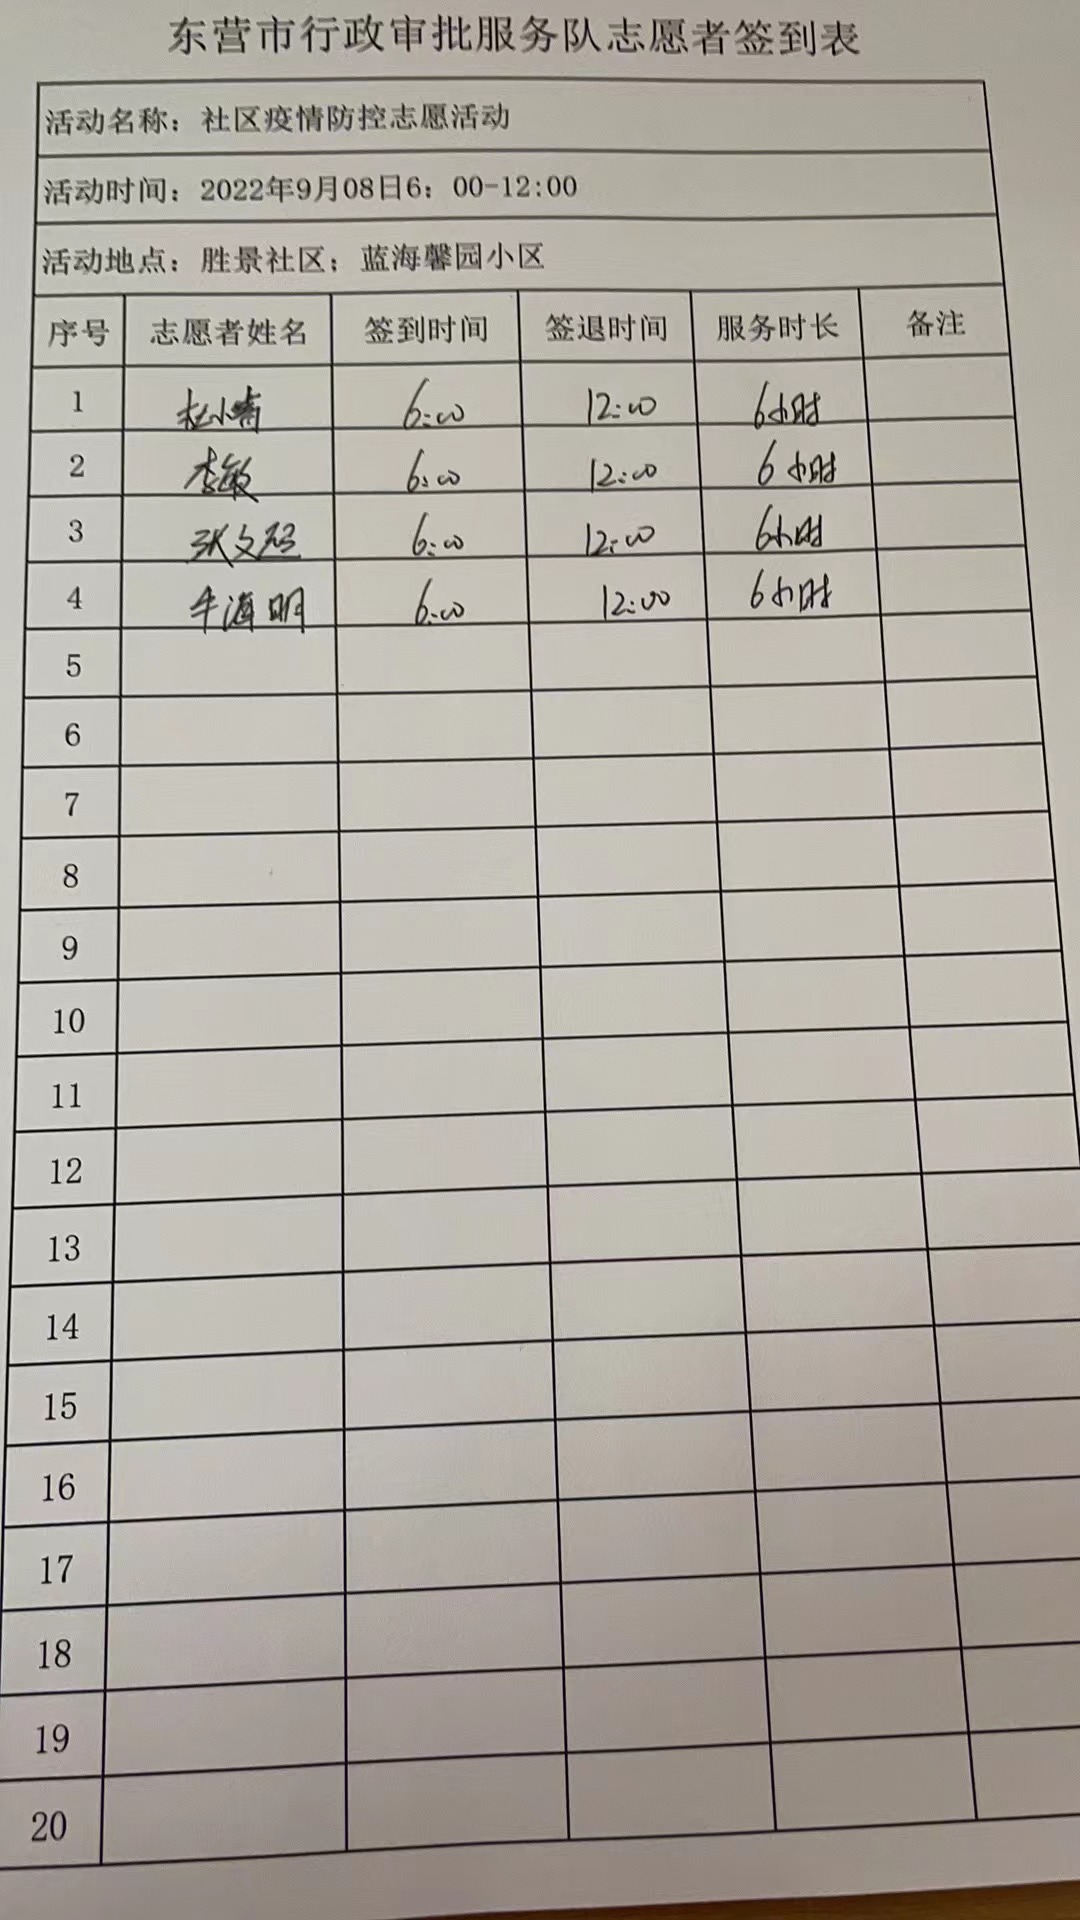 东营市行政审批服务队志愿者签到表
活动名称：社区疫情防控志愿活动
活动时间：2022年9月08日6：00-12:00
活动地点：胜景社区；蓝海馨园小区
序号 志愿者姓名 签到时间 签退时间 服务时长 备注
1 小 6:00 12:00 6小时
2 李敏 6:00 12:00 6小时
3 张文 6:00 12:00 6小时
4 牛海明 6:00 12:00 6小时
5
6
7
8
9
10
11
12
13
14
15
16
17
18
19
20